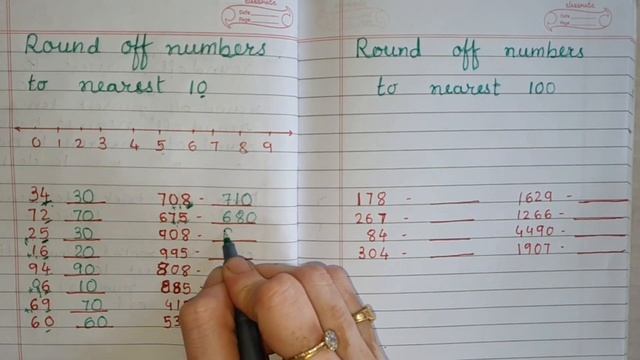 classmate
Date
Page
classmate
Date
Page
Round off numbers
to nearest 10
0 1 2 3 4 5 6 7 8 9
34 30
72 70
25 30
16 20
94 90
96 10
69 70
60 60
708 - 710
675 - 680
908 -
995 -
808 -
885
41
53
Round off numbers
to nearest 100
178 -
267 -
84 -
304 -
1629 -
1266 -
4490 -
1907 -